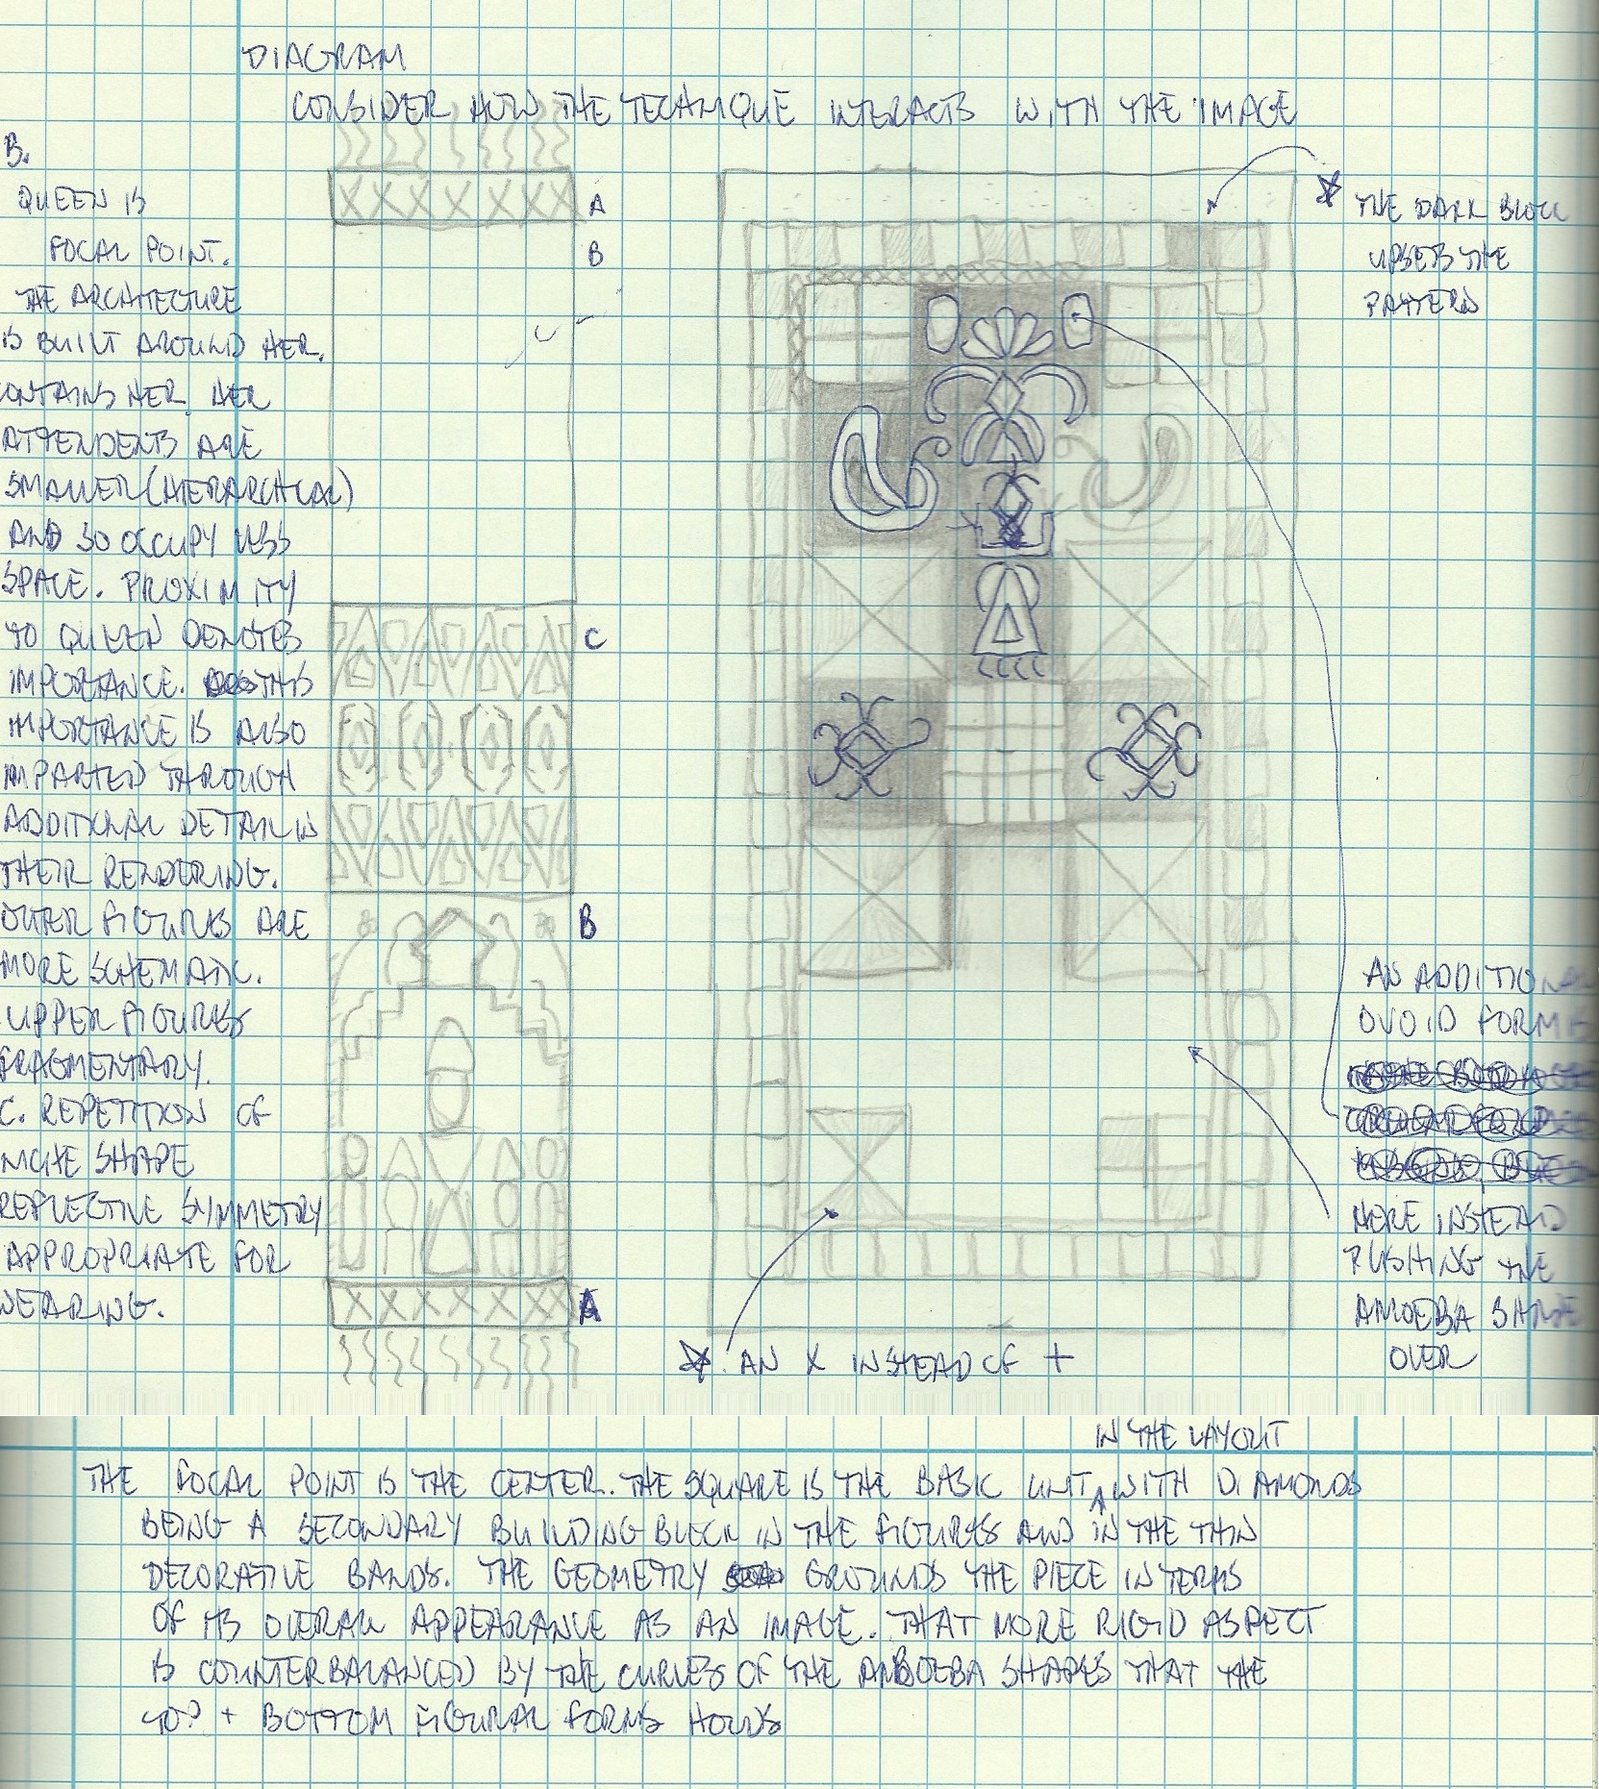 DIAGRAM
CONSIDER HOW THE TECHNIQUE INTERACTS WITH THE IMAGE
B.
QUEEN IS
FOCAL POINT.
THE ARCHITECTURE
IS BUILT AROUND HER.
CONTAINS HER. HER
ATTENDENTS ARE
SMALLER (HIERARCHICAL)
AND SO OCCUPY LESS
SPACE. PROXIMITY
TO QUEEN DENOTES
IMPORTANCE. THIS
IMPORTANCE IS ALSO
IMPARTED THROUGH
ADDITIONAL DETAIL IN
THEIR RENDERING.
OUTER FIGURES ARE
MORE SCHEMATIC.
UPPER FIGURES
FRAGMENTARY.
C. REPETITION OF
NICHE SHAPE
REFLECTIVE SYMMETRY
APPROPRIATE FOR
WEARING.
A
B
C
B
A
* THE DARK BLOCK
UPSETS THE
PATTERN
AN ADDITIONAL
OVOID FORM IS
HERE INSTEAD
PUSHING THE
AMOEBA SHAPE
OVER
* AN X INSTEAD OF +
IN THE LAYOUT
THE FOCAL POINT IS THE CENTER. THE SQUARE IS THE BASIC UNIT ^ WITH DIAMONDS
BEING A SECONDARY BUILDING BLOCK IN THE FIGURES AND IN THE THIN
DECORATIVE BANDS. THE GEOMETRY GROUNDS THE PIECE IN TERMS
OF ITS OVERALL APPEARANCE AS AN IMAGE. THAT MORE RIGID ASPECT
IS COUNTERBALANCED BY THE CURVES OF THE AMOEBA SHAPES THAT THE
TOP + BOTTOM FIGURAL FORMS HOLDS